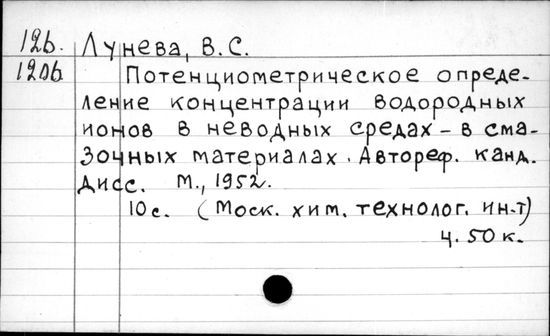 12б. Лунева, В.С.
120б Потенциометрическое опреде-
ление концентрации водородных
ионов в неводных средах - в сма-
зочных материалах. Автореф. канд.
дисс. М., 1952.
10 с. (Моск. хим. технолог. ин-т)
ц. 50 к.